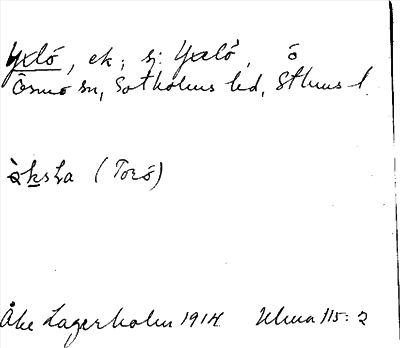 Yxlö, ek; sj: Yxlö, ö
Ösmo sn, Sotholms hd, Sthms l.
ò̀ksLa (Torö)
Åke Lagerholm 1914. Ulma 115:2